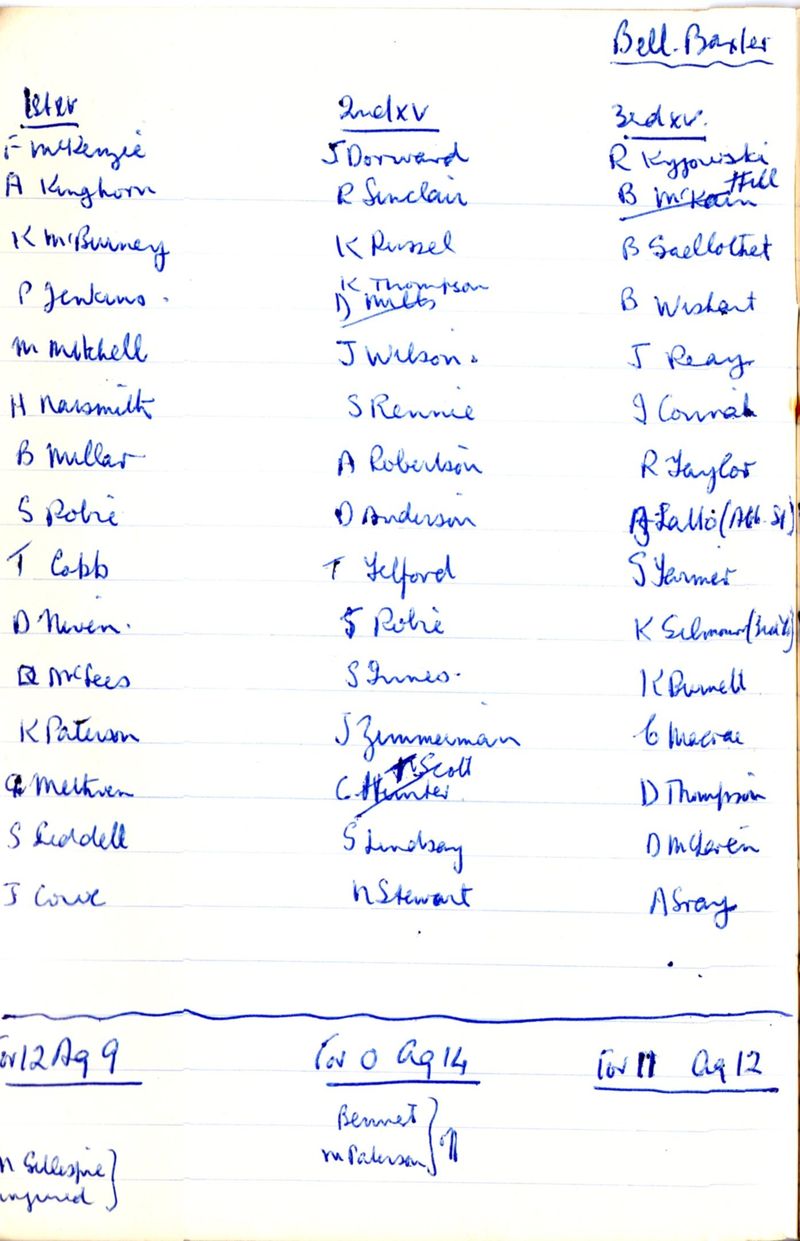 Bell-Baxter
1st xv
F McKenzie
A Kinghorn
K McBurney
P Jenkins.
M Mitchell
H Naismith
B Millar
S Robie
T Cobb
D Niven.
McLees
K Paterson
Methven
S Liddell
J Cowe
For 12 Ag 9
N Gillespie
injured
2nd xv
J Dorward
R Sinclair
K Russel
K Thompson
D Mills
J Wilson.
S Rennie
A Robertson
D Anderson
T Telford
J Robie
S Innes.
J Zimmerman
N Scott
C Hunter
S Lindsay
N Stewart
For 0 Ag 14
Bennet
M Paterson
off
3rd xv.
R
Hill
B McKain
B
B Wishart
J Reay
J
R Taylor
S Farmer
K Gilmour
K Burnell
C Macrae
D Thompson
D McLaren
A Gray
For 11 Ag 12